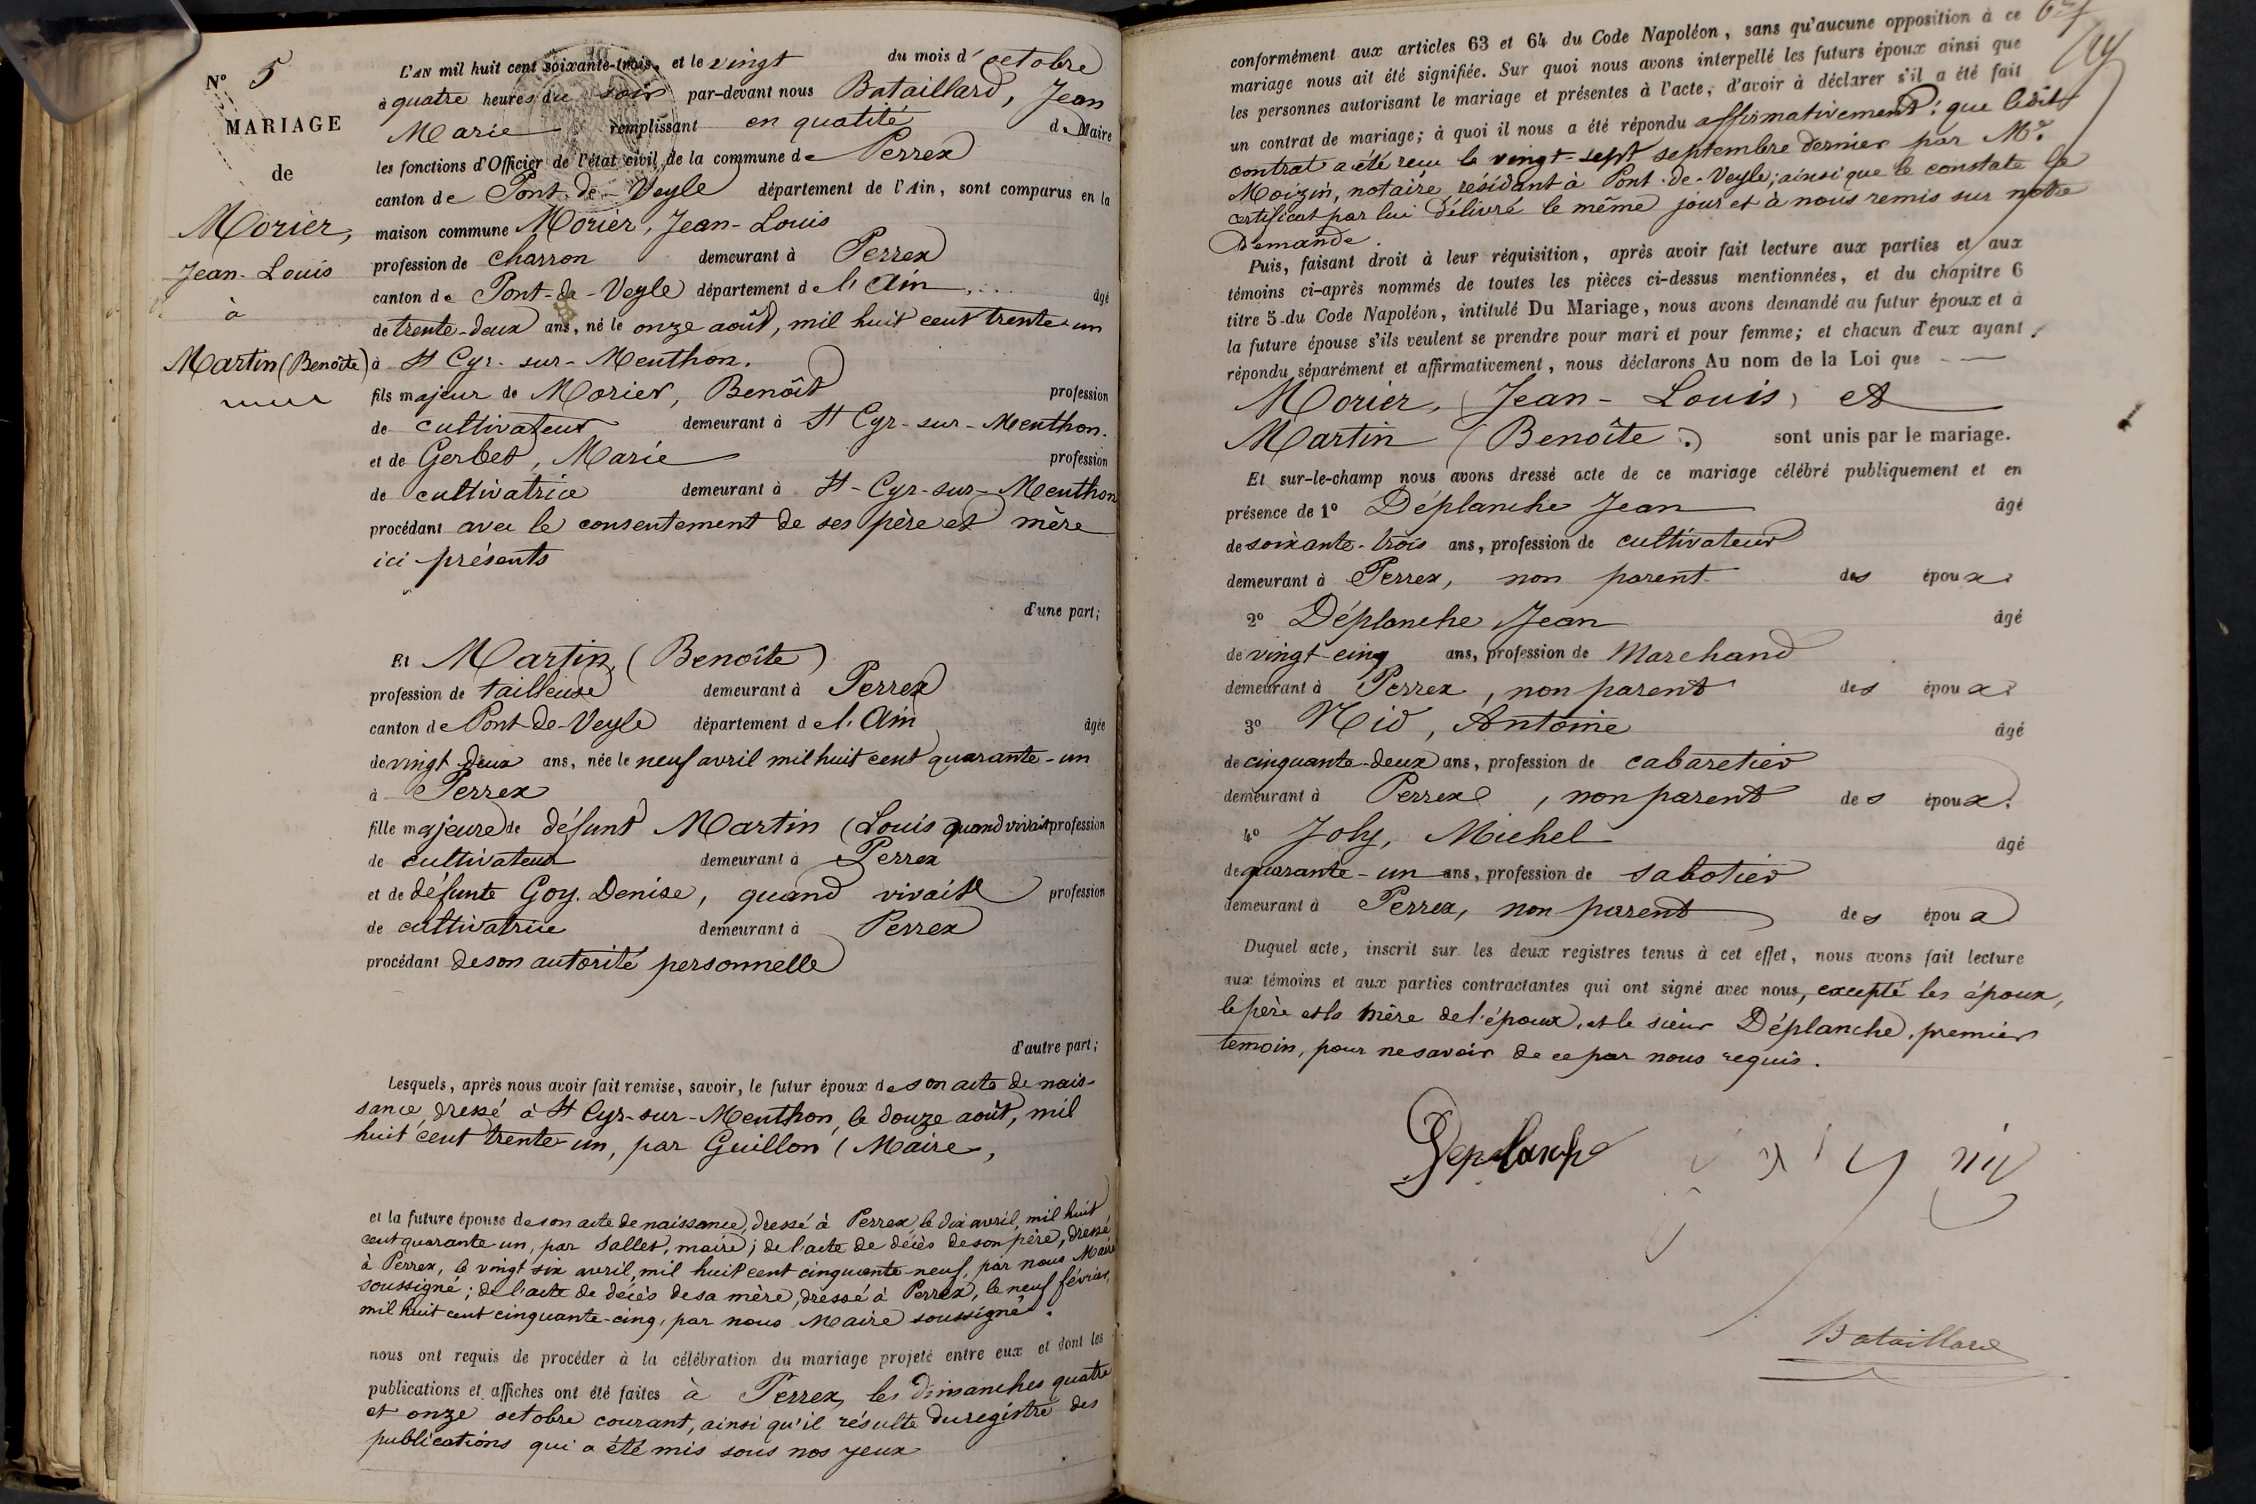 N° 5
MARIAGE
de
Morier,
Jean-Louis
à
Martin (Benoîte)
L'AN mil huit cent soixante-trois, et le vingt du mois d'octobre
à quatre heures du soir par-devant nous Bataillard, Jean
Marie remplissant en qualité de Maire
les fonctions d'Officier de l'état civil de la commune de Perrex
canton de Pont-de-Veyle département de l'Ain, sont comparus en la
maison commune Morier, Jean-Louis
profession de charron demeurant à Perrex
canton de Pont-de-Veyle département de l'Ain, âgé
de trente-deux ans, né le onze août, mil huit cent trente-un
à St Cyr-sur-Menthon.
fils majeur de Morier, Benoît profession
de cultivateur demeurant à St Cyr-sur-Menthon.
et de Gerbet, Marie profession
de cultivatrice demeurant à St-Cyr-sur-Menthon
procédant avec le consentement de ses père et mère
ici présents
d'une part;
Et Martin, (Benoîte)
profession de tailleuse demeurant à Perrex
canton de Pont-de-Veyle département de l'Ain âgée
de vingt-deux ans, née le neuf avril mil huit cent quarante-un
à Perrex
fille majeure de défunt Martin (Louis quand vivait profession
de cultivateur demeurant à Perrex
et de défunte Goy, Denise, quand vivait profession
de cultivatrice demeurant à Perrex
procédant de son autorité personnelle
d'autre part;
Lesquels, après nous avoir fait remise, savoir, le futur époux de son acte de nais-
sance, dressé à St Cyr-sur-Menthon, le douze août, mil
huit cent trente-un, par Guillon (Maire,
et la future épouse de son acte de naissance, dressé à Perrex, le dix avril, mil huit
cent quarante un, par Sallet, maire; de l'acte de décès de son père, dressé
à Perrex, le vingt six avril, mil huit cent cinquante-neuf, par nous Maire
soussigné; de l'acte de décès de sa mère, dressé à Perrex, le neuf février,
mil huit cent cinquante-cinq, par nous Maire soussigné.
nous ont requis de procéder à la célébration du mariage projeté entre eux et dont les
publications et affiches ont été faites à Perrex, les dimanches quatre
et onze octobre courant, ainsi qu'il résulte du registre des
publications qui a été mis sous nos yeux
conformément aux articles 63 et 64 du Code Napoléon, sans qu'aucune opposition à ce
mariage nous ait été signifiée. Sur quoi nous avons interpellé les futurs époux ainsi que
les personnes autorisant le mariage et présentes à l'acte, d'avoir à déclarer s'il a été fait
un contrat de mariage; à quoi il nous a été répondu affirmativement; que ledit
contrat a été reçu le vingt-sept septembre dernier par Me
Moizin, notaire, résidant à Pont-de-Veyle; ainsi que le constate le
certificat par lui délivré le même jour et à nous remis sur notre
demande.
Puis, faisant droit à leur réquisition, après avoir fait lecture aux parties et aux
témoins ci-après nommés de toutes les pièces ci-dessus mentionnées, et du chapitre 6
titre 5 du Code Napoléon, intitulé Du Mariage, nous avons demandé au futur époux et à
la future épouse s'ils veulent se prendre pour mari et pour femme; et chacun d'eux ayant
répondu séparément et affirmativement, nous déclarons Au nom de la Loi que
Morier, (Jean-Louis) et
Martin (Benoîte) sont unis par le mariage.
Et sur-le-champ nous avons dressé acte de ce mariage célébré publiquement et en
présence de 1° Déplanche Jean âgé
de soixante-trois ans, profession de cultivateur
demeurant à Perrex, non parent des époux
2° Déplanche Jean âgé
de vingt-cinq ans, profession de Marchand
demeurant à Perrex, non parent des époux
3° Nid, Antoine âgé
de cinquante-deux ans, profession de cabaretier
demeurant à Perrex, non parent des époux.
4° Joly, Michel âgé
de quarante-un ans, profession de sabotier
demeurant à Perrex, non parent des époux
Duquel acte, inscrit sur les deux registres tenus à cet effet, nous avons fait lecture
aux témoins et aux parties contractantes qui ont signé avec nous, excepté les époux,
le père et la mère de l'époux, et le sieur Déplanche, premier
temoin, pour ne savoir de ce par nous requis.
Deplanche
nid
Bataillard